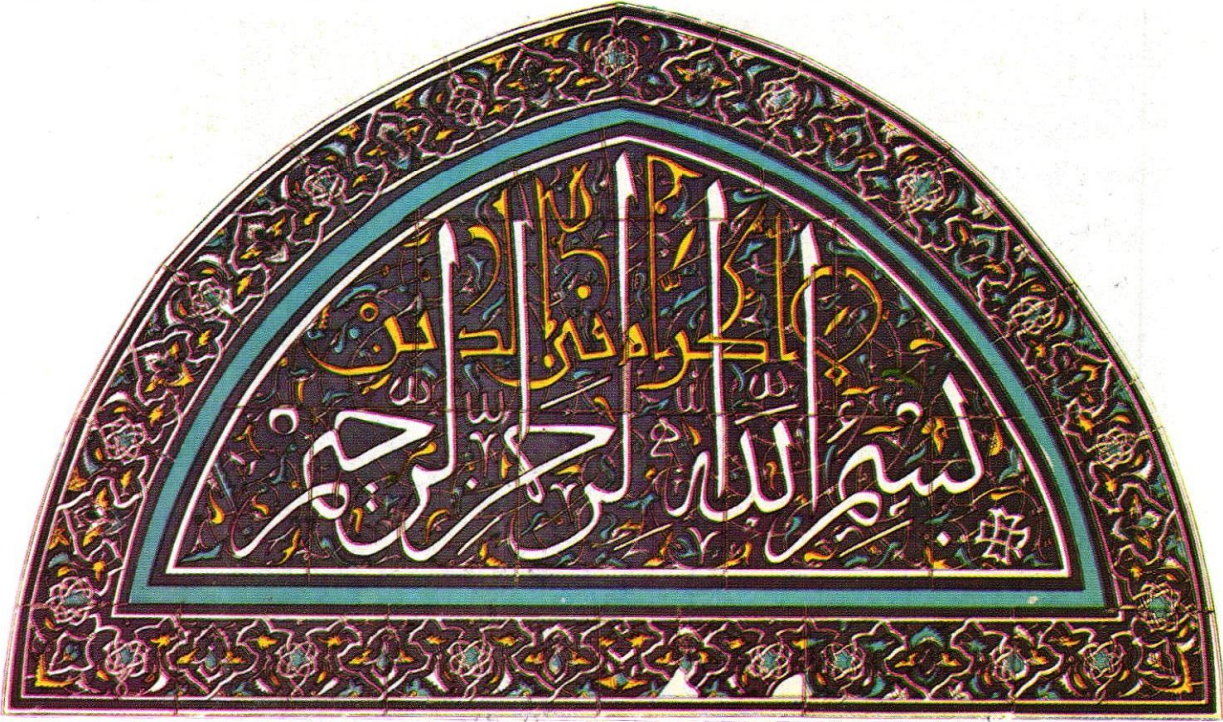 لا اكراه فى الدين
بسم الله الرحمن الرحيم